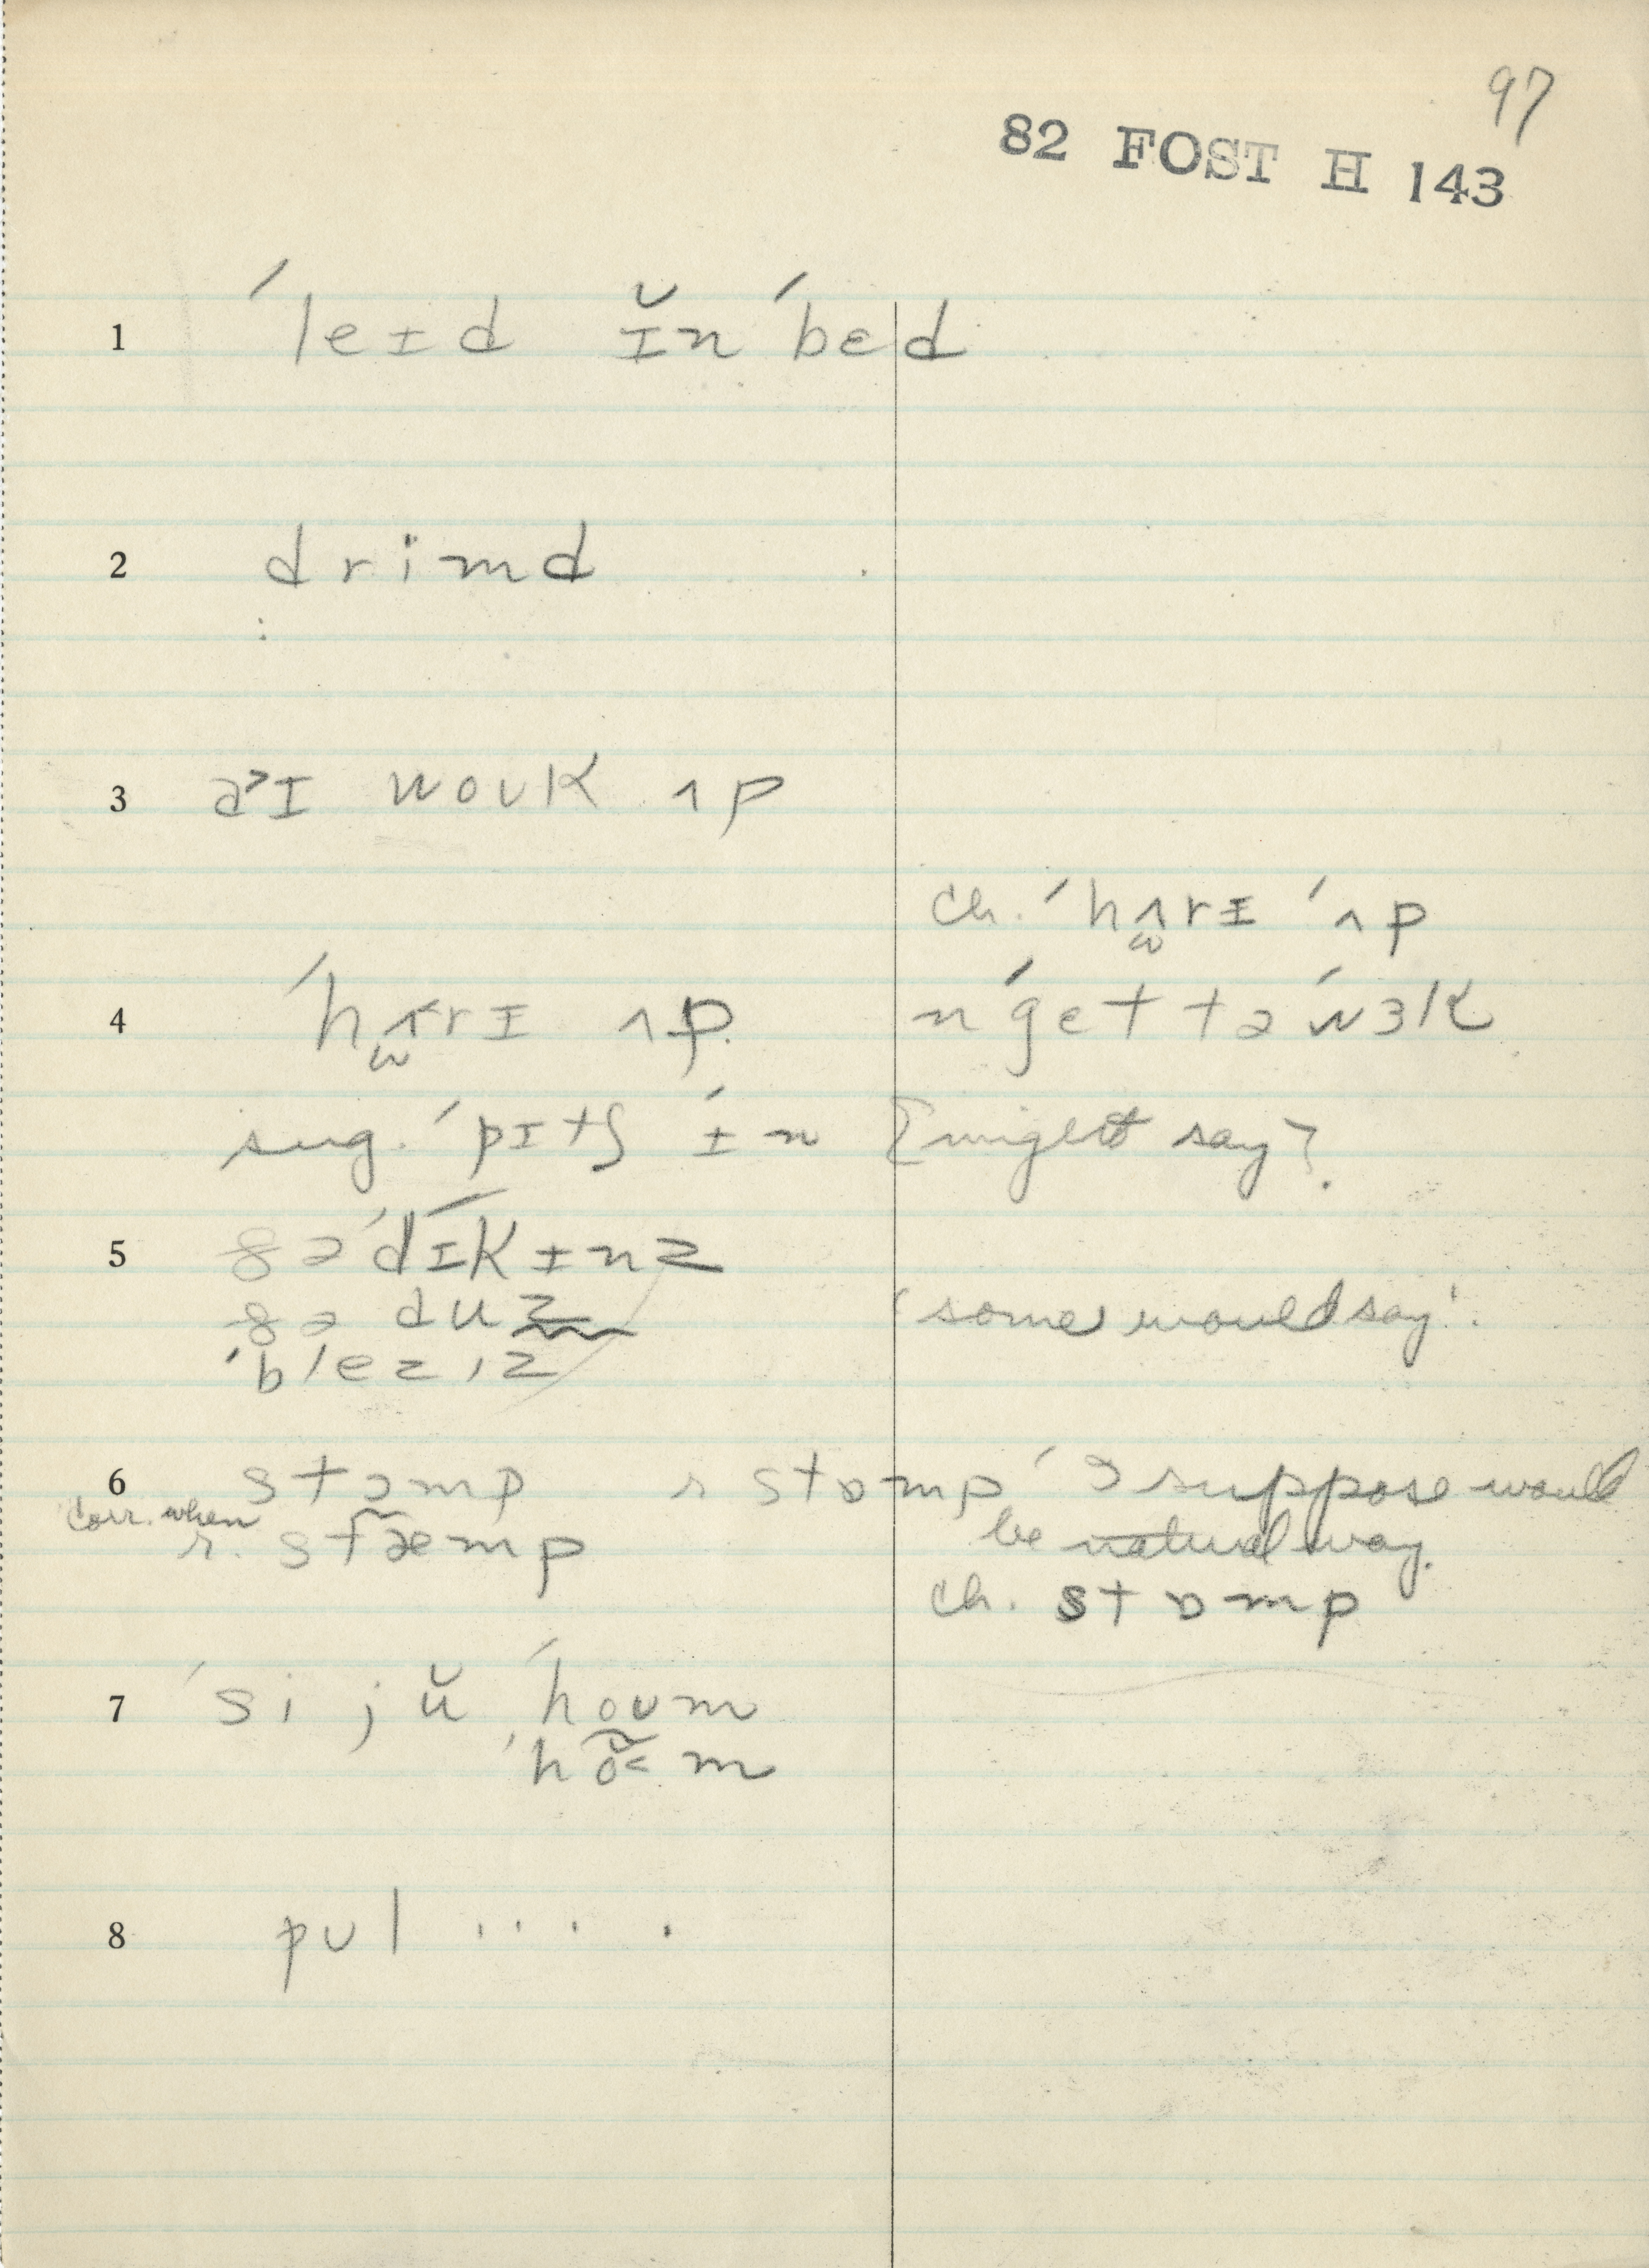 97
82 FOST H 143
1 ˈleɪd ɪ̆n ˈbɛd
2 drimd
3 a˃ɪ woʊk ʌp
ch. ˈhʌ̫rɪ ˈʌp
4 ˈhʌ̫rɪ ʌp. n ˈget tə ˈwɜk
sug. ˈpɪtʃ ˈɪn [might say?].
5 ðə ˈdɪkɪnz
ðə duz 'some would say'.
ˈblezɪz
6 stɔmp r stɒmp 'I suppose would
corr. when r. stæmp be natural way.
ch. stɒmp
7 ˈsi jŭ ˈhoʊm
ˈhõ˂m
8 pʊl ....